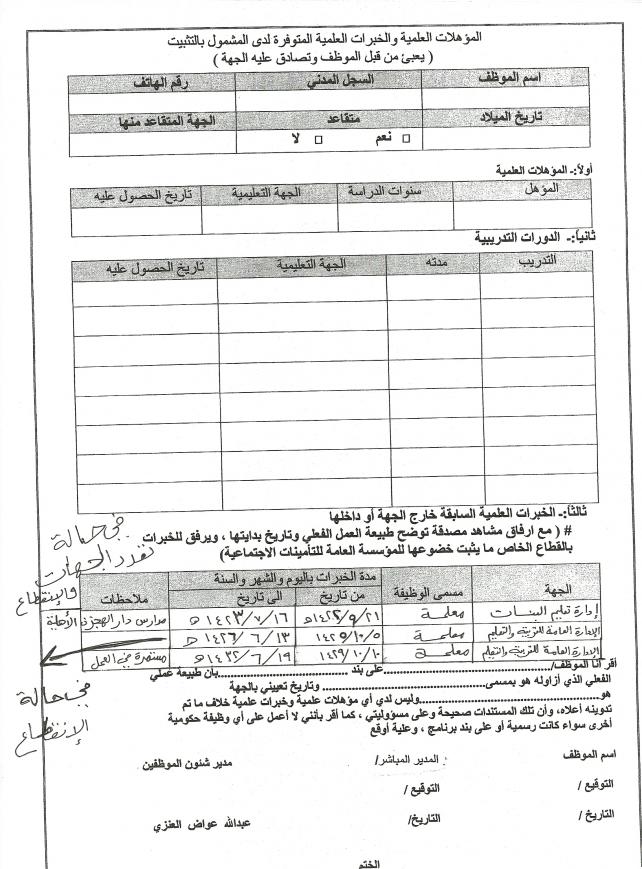 المؤهلات العلمية والخبرات العلمية المتوفرة لدى المشمول بالتثبيت
( يعبئ من قبل الموظف وتصادق عليه الجهة )
اسم الموظف السجل المدني رقم الهاتف
تاريخ الميلاد متقاعد الجهة المتقاعد منها
□ نعم □ لا
أولاً:- المؤهلات العلمية
المؤهل سنوات الدراسة الجهة التعليمية تاريخ الحصول عليه
ثانياً:- الدورات التدريبية
التدريب مدته الجهة التعليمية تاريخ الحصول عليه
ثالثاً:- الخبرات العلمية السابقة خارج الجهة أو داخلها
# ( مع ارفاق مشاهد مصدقة توضح طبيعة العمل الفعلي وتاريخ بدايتها ، ويرفق للخبرات
بالقطاع الخاص ما يثبت خضوعها للمؤسسة العامة للتأمينات الاجتماعية)
في حالة
تعدد الجهات
والإنقطاع
الجهة مسمى الوظيفة مدة الخبرات باليوم والشهر والسنة ملاحظات
من تاريخ الى تاريخ
إدارة تعليم البنات معلمة ١٤٢٢/٩/٢١هـ ١٤٢٣/٧/١٦هـ مدارس دار الهجرة الأهلية
الإدارة العامة للتربية والتعليم معلمة ١٤٢٥/١٠/٥ ١٤٢٦/٦/١٣هـ
الإدارة العامة للتربية والتعليم معلمة ١٤٢٩/١٠/١٠ ١٤٣٢/٦/١٩هـ مستمرة في العمل
في حالة
الإنقطاع
اقر أنا الموظف/.....................على بند ....................بأن طبيعة عملي
الفعلي الذي أزاوله هو بمسمى.....................وتاريخ تعييني بالجهة
هو.....................وليس لدي أي مؤهلات علمية وخبرات علمية خلاف ما تم
تدوينه أعلاه، وأن تلك المستندات صحيحة وعلى مسؤوليتي ، كما أقر بأنني لا أعمل على أي وظيفة حكومية
أخرى سواء كانت رسمية أو على بند برنامج ، وعلية أوقع
اسم الموظف المدير المباشر/ مدير شئون الموظفين
التوقيع / التوقيع /
التاريخ / التاريخ/ عبدالله عواض العنزي
الختم